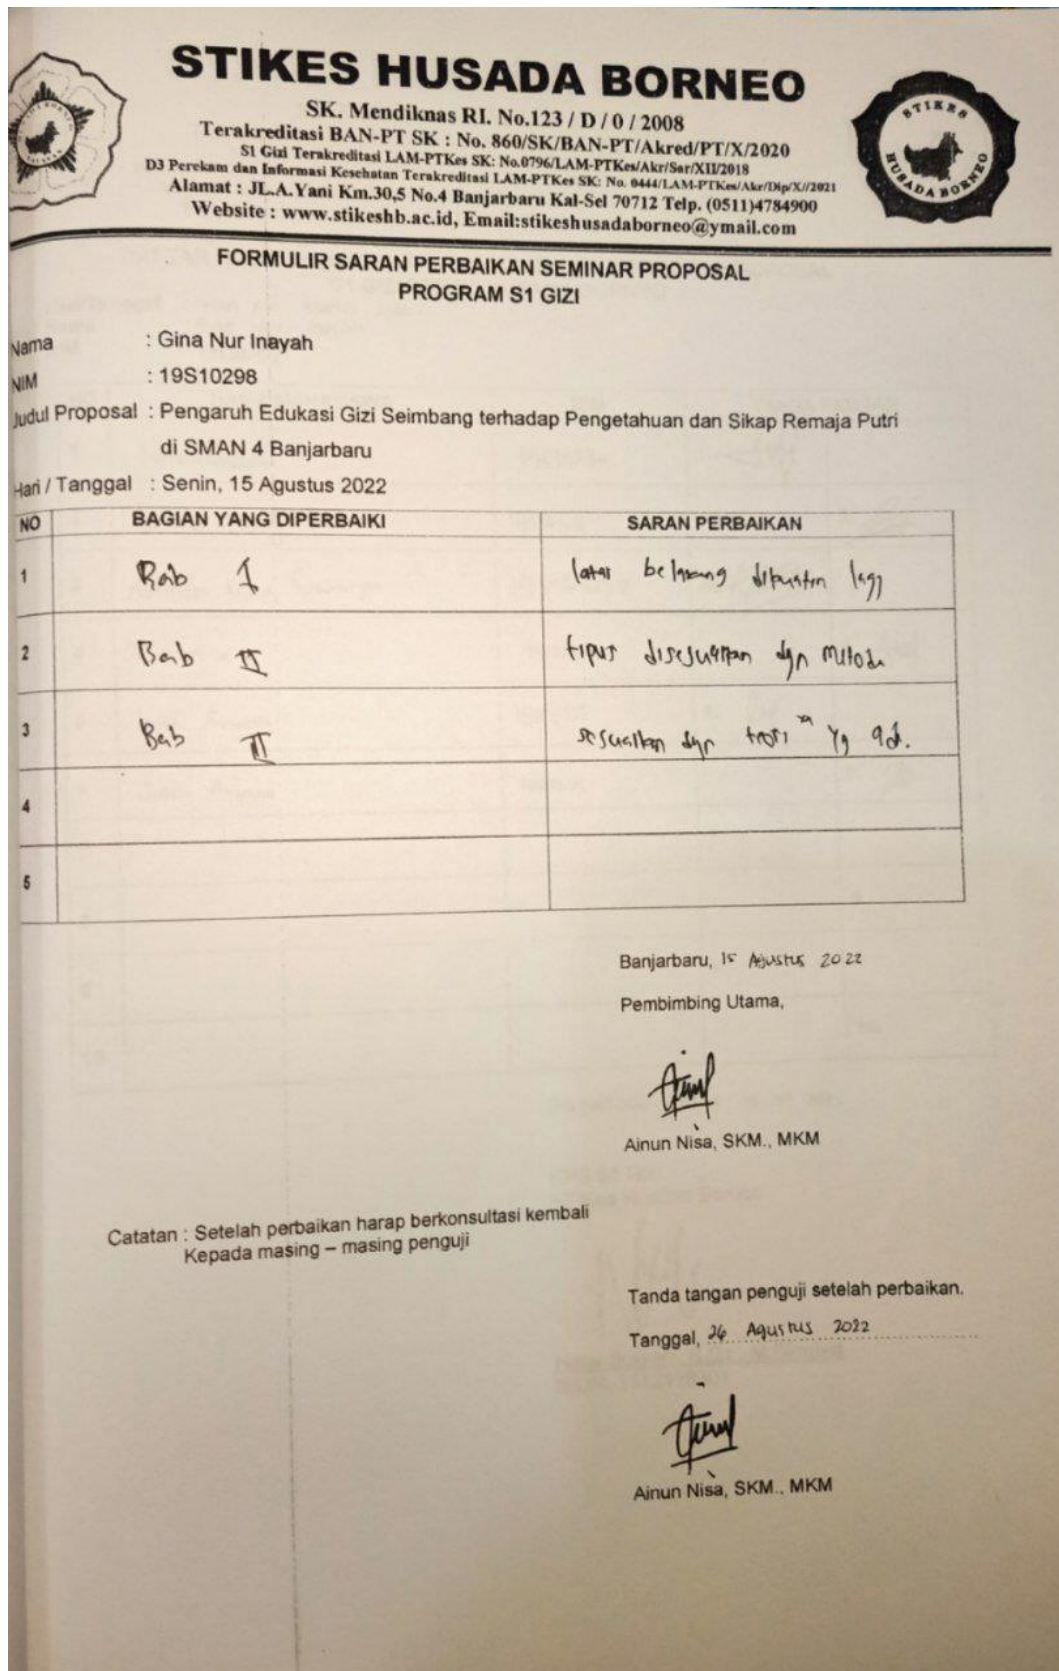 STIKES HUSADA BORNEO
SK. Mendiknas RI. No.123 / D / 0 / 2008
Terakreditasi BAN-PT SK : No. 860/SK/BAN-PT/Akred/PT/X/2020
S1 Gizi Terakreditasi LAM-PTKes SK: No.0796/LAM-PTKes/Akr/Sar/XII/2018
D3 Perekam dan Informasi Kesehatan Terakreditasi LAM-PTKes SK: No. 0444/LAM-PTKes/Akr/Dip/X//2021
Alamat : JL.A.Yani Km.30,5 No.4 Banjarbaru Kal-Sel 70712 Telp. (0511)4784900
Website : www.stikeshb.ac.id, Email:stikeshusadaborneo@ymail.com
STIKES
HUSADA BORNEO
FORMULIR SARAN PERBAIKAN SEMINAR PROPOSAL
PROGRAM S1 GIZI
Nama : Gina Nur Inayah
NIM : 19S10298
Judul Proposal : Pengaruh Edukasi Gizi Seimbang terhadap Pengetahuan dan Sikap Remaja Putri
di SMAN 4 Banjarbaru
Hari / Tanggal : Senin, 15 Agustus 2022
NO BAGIAN YANG DIPERBAIKI SARAN PERBAIKAN
1 Bab I latar belakang dikuatkan lagi
2 Bab II tipus disesuaikan dgn metode
3 Bab II sesuaikan dgn teori yg ad.
4
5
Banjarbaru, 15 Agustus 2022
Pembimbing Utama,
Ainun Nisa, SKM., MKM
Catatan : Setelah perbaikan harap berkonsultasi kembali
Kepada masing – masing penguji
Tanda tangan penguji setelah perbaikan.
Tanggal, 26 Agustus 2022
Ainun Nisa, SKM., MKM